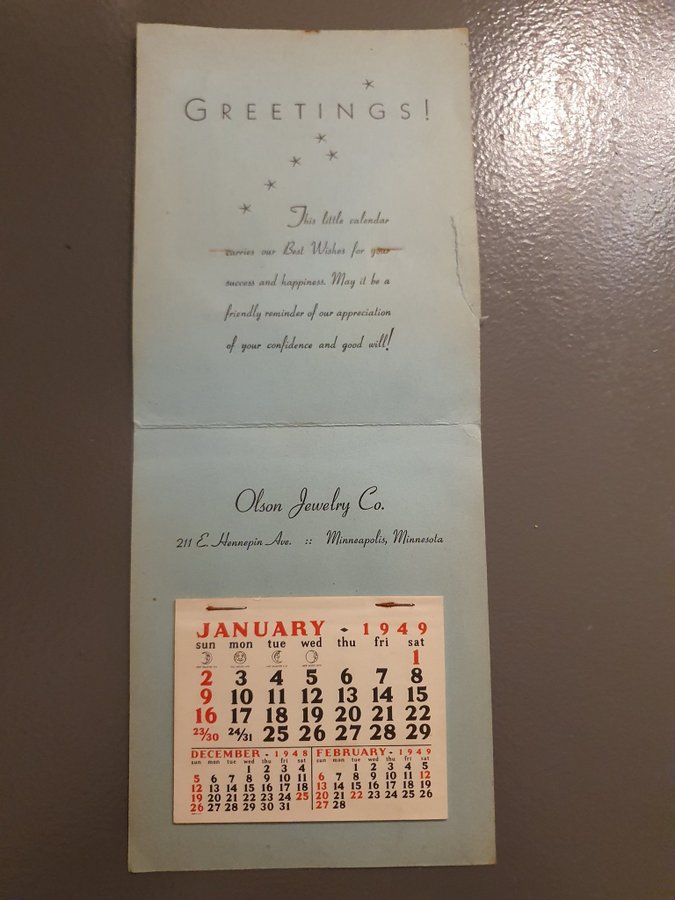 GREETINGS!
This little calendar
carries our Best Wishes for your
success and happiness. May it be a
friendly reminder of our appreciation
of your confidence and good will!
Olson Jewelry Co.
211 E. Hennepin Ave. :: Minneapolis, Minnesota
JANUARY - 1949
sun mon tue wed thu fri sat
1
2 3 4 5 6 7 8
9 10 11 12 13 14 15
16 17 18 19 20 21 22
23/30 24/31 25 26 27 28 29
DECEMBER - 1948
sun mon tue wed thu fri sat
1 2 3 4
5 6 7 8 9 10 11
12 13 14 15 16 17 18
19 20 21 22 23 24 25
26 27 28 29 30 31
FEBRUARY - 1949
sun mon tue wed thu fri sat
1 2 3 4 5
6 7 8 9 10 11 12
13 14 15 16 17 18 19
20 21 22 23 24 25 26
27 28